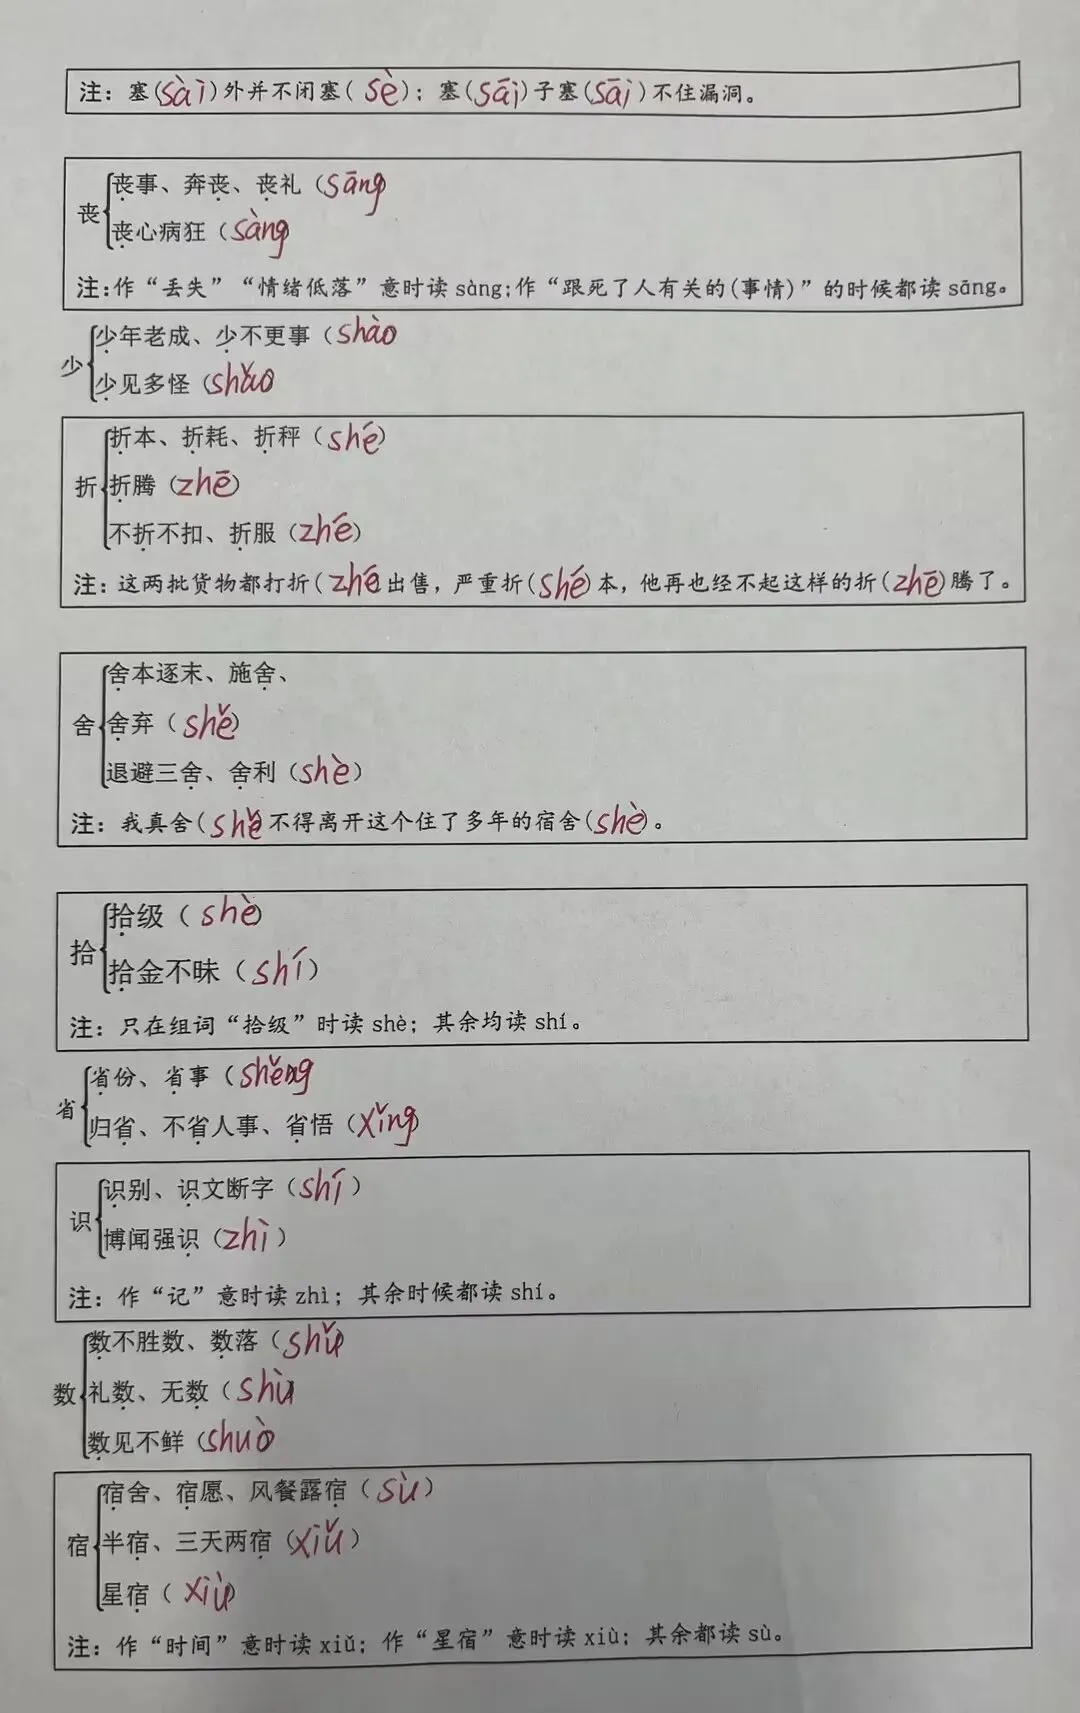 注：塞(sài)外并不闭塞(sè)；塞(sāi)子塞(sāi)不住漏洞。
丧事、奔丧、丧礼（sāng
丧
丧心病狂（sàng
注:作“丢失”“情绪低落”意时读sàng;作“跟死了人有关的(事情)”的时候都读sāng。
少年老成、少不更事（shào
少
少见多怪（shǎo
折本、折耗、折秤（shé）
折
折腾（zhē）
不折不扣、折服（zhé）
注：这两批货物都打折(zhé出售，严重折(shé)本，他再也经不起这样的折(zhē)腾了。
舍本逐末、施舍、
舍
舍弃（shě）
退避三舍、舍利（shè）
注：我真舍(shě)不得离开这个住了多年的宿舍(shè)。
拾级（shè）
拾
拾金不昧（shí）
注：只在组词“拾级”时读shè；其余均读shí。
省份、省事（shěng
省
归省、不省人事、省悟（xǐng）
识别、识文断字（shí）
识
博闻强识（zhì）
注：作“记”意时读zhì；其余时候都读shí。
数不胜数、数落（shǔ）
数
礼数、无数（shù）
数见不鲜（shuò
宿舍、宿愿、风餐露宿（sù）
宿
半宿、三天两宿（xiǔ）
星宿（xiù）
注：作“时间”意时读xiǔ；作“星宿”意时读xiù；其余都读sù。